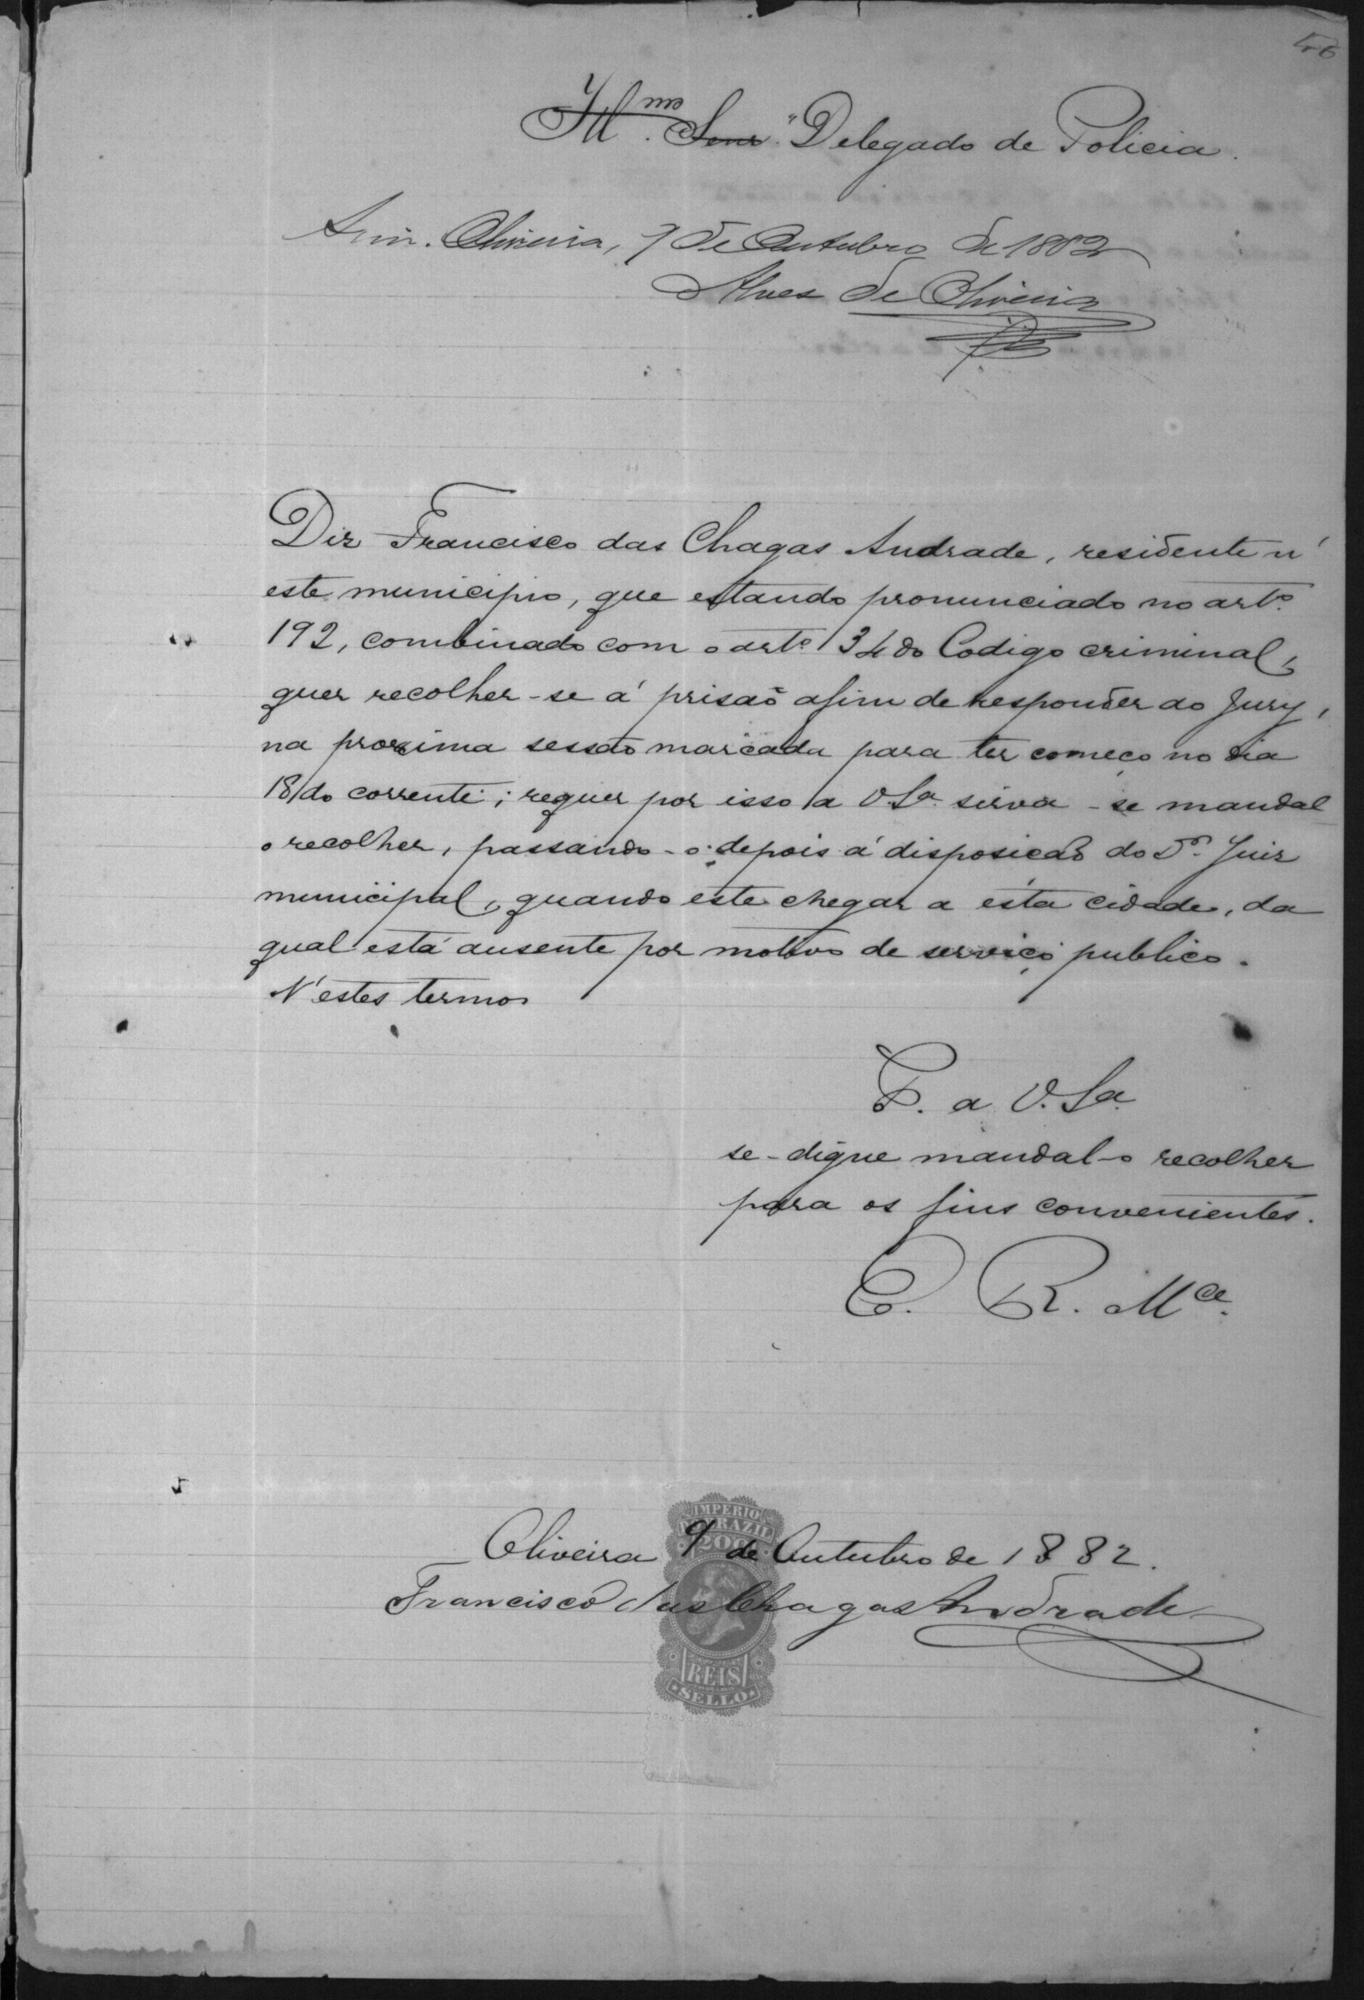 46
Illmo. Senr. Delegado de Policia.
Sim. Oliveira, 9 de Outubro de 1882
Alves de Oliveira
Diz Francisco das Chagas Andrade, residente n'
este municipio, que estando pronunciado no arto.
192, combinado com o arto. 34 do Codigo criminal,
quer recolher-se á prisaõ afim de responder ao Jury,
na proxima sessão marcada para ter começo no dia
18 do corrente; requer por isso a V.Sa. sirva-se mandal
o recolher, passando-o depois á disposicaõ do Dr. Juiz
municipal, quando este chegar a esta cidade, da
qual está ausente por motivo de serviço publico.
N'estes termos
P. a V. Sa.
se-digne mandal-o recolher
para os fins convenientes.
E. R. Mce.
IMPERIO
DO BRAZIL
200
Oliveira 9 de Outubro de 1882.
Francisco das Chagas Andrade
REIS
SELLO